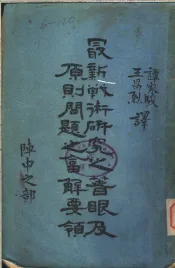 譚家駿
王昌烈 譯
最新戰術研究之着眼及
原則問題之富解要領
陣中之部